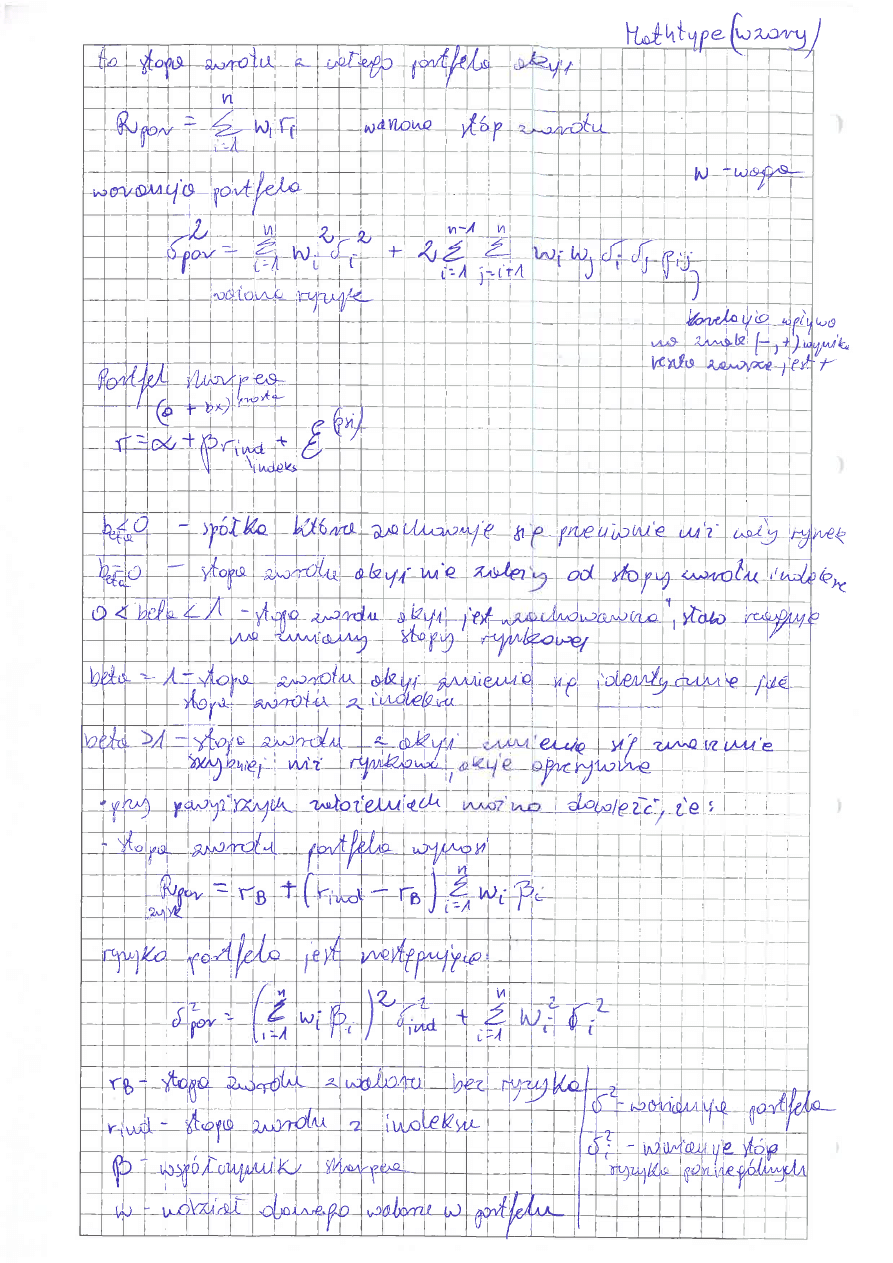 Mathtype (wzory)
to stopa zwrotu z całego portfela akcji
R_por = n Σ i=1 w_i r_i ważona stóp zwrotu
w - waga
wariancja portfela
δ²_por = n Σ i=1 w_i² δ_i² + 2 n-1 Σ i=1 n Σ j=i+1 w_i w_j δ_i δ_j ρ_ij
ważone ryzyk
korelacja wpływa
na znak (-,+) wyniku
reszta zawsze jest +
Portfel Sharpea
(a + bx) prosta
r = α + β r_ind + ξ (psi)
indeks
beta < 0 - spółka która zachowuje się przeciwnie niż cały rynek
beta = 0 - stopa zwrotu akcji nie zależy od stopy zwrotu indeksu
0 < beta < 1 - stopa zwrotu akcji jest zachowawcza", słabo reaguje
na zmiany stopy rynkowej
beta = 1 - stopa zwrotu akcji zmienia się identycznie jak
stopa zwrotu z indeksu
beta > 1 - stopa zwrotu z akcji zmienia się znacznie
szybciej niż rynkowa, akcje agresywne
• przy powyższych założeniach można dowieźć, że:
- stopa zwrotu portfela wynosi
R_por = r_B + (r_ind - r_B) n Σ i=1 w_i β_i
zysk
ryzyko portfela jest następujące:
δ²_por = (n Σ i=1 w_i β_i)² δ²_ind + n Σ i=1 w_i² δ_i²
r_B - stopa zwrotu z waloru bez ryzyka
r_ind - stopa zwrotu z indeksu
β - współczynnik sharpea
w - udział danego waloru w portfelu
δ² - wariancja portfela
δ_i² - wariancje stóp
ryzyka poszczególnych